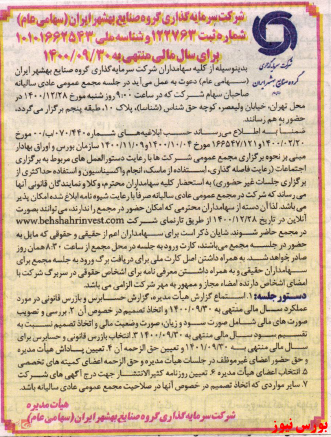 شرکت سرمایه گذاری گروه صنایع بهشهر ایران (سهامی عام)
شماره ثبت ۱۲۲۷۶۳ و شناسه ملی ۱۰۱۰۱۶۶۲۵۴۳
برای سال مالی منتهی به ۱۴۰۰/۰۹/۳۰
شرکت سرمایه گذاری
گروه صنایع بهشهر ایران
بدینوسیله از کلیه سهامداران شرکت سرمایه گذاری گروه صنایع بهشهر ایران
(سهامی عام) دعوت به عمل می آید در جلسه مجمع عمومی عادی سالیانه
صاحبان سهام شرکت که در ساعت ۹:۰۰ روز شنبه مورخ ۱۴۰۰/۱۲/۲۸ در
محل تهران، خیابان ولیعصر، کوچه حق شناس (شناسا)، پلاک ۱۰، طبقه پنجم برگزار می گردد،
حضور به هم رسانند.
ضمنا به اطلاع می رساند حسب ابلاغیه های شماره ۰۷۰/۴۴۰/ب/۰۰ مورخ
۱۴۰۰/۰۲/۲۰ و ۱۶۵۴۷/۱۲۱ مورخ ۱۴۰۰/۱۰/۰۴ و ۱۴۰۰/۱۱/۰۹ سازمان بورس و اوراق بهادار
مبنی بر نحوه برگزاری مجمع عمومی شرکت ها با رعایت دستورالعمل های مربوط به برگزاری
اجتماعات (رعایت فاصله گذاری، استفاده از ماسک، انجام واکسیناسیون و استفاده حداکثری از
برگزاری جلسات غیر حضوری) به استحضار کلیه سهامداران محترم، وکلا و نمایندگان قانونی آنها
می رساند که شرکت در مجمع عمومی عادی سالیانه صرفاً با رعایت شیوه نامه ابلاغ شده امکان پذیر
می باشد. لذا آن دسته از سهامداران محترمی که امکان حضور در مجمع را ندارند، می توانند بصورت
آنلاین در تاریخ ۱۴۰۰/۱۲/۲۸ از طریق تارنمای شرکت www.behshahrinvest.com
در مجمع حاضر شوند. شایان ذکر است برای سهامداران اعم از حقیقی و حقوقی که مایل به
حضور در جلسه مجمع می باشند، کارت ورود به جلسه در محل مجمع از ساعت ۸:۳۰ همان روز
صادر خواهد شد. به همراه داشتن اصل کارت ملی برای دریافت برگ ورود به جلسه مجمع برای
سهامداران حقیقی و به همراه داشتن معرفی نامه برای اشخاص حقوقی در سربرگ شرکت با
امضای اشخاص دارنده امضاء مجاز و ممهور به مهر شرکت الزامی می باشد.
دستور جلسه: ۱. استماع گزارش هیأت مدیره، گزارش حسابرس و بازرس قانونی در مورد
عملکرد سال مالی منتهی به ۱۴۰۰/۰۹/۳۰ و اتخاذ تصمیم در خصوص آن ۲. بررسی و تصویب
صورت های مالی شامل صورت سود و زیان، صورت وضعیت مالی و اتخاذ تصمیم نسبت به
تقسیم سود سال مالی منتهی به ۱۴۰۰/۰۹/۳۰ ۳. انتخاب بازرس قانونی و حسابرس برای
سال مالی منتهی به ۱۴۰۱/۰۹/۳۰ و تعیین حق الزحمه آن ۴. تعیین پاداش هیأت مدیره
و حق حضور اعضای غیر موظف در جلسات هیأت مدیره و حق الزحمه اعضای کمیته های تخصصی
۵. انتخاب اعضای هیأت مدیره ۶. تعیین روزنامه کثیرالانتشار جهت درج آگهی های شرکت
۷. سایر مواردی که اتخاذ تصمیم در خصوص آنها در صلاحیت مجمع عمومی عادی سالیانه باشد.
هیأت مدیره
شرکت سرمایه گذاری گروه صنایع بهشهر ایران (سهامی عام)
بورس نیوز